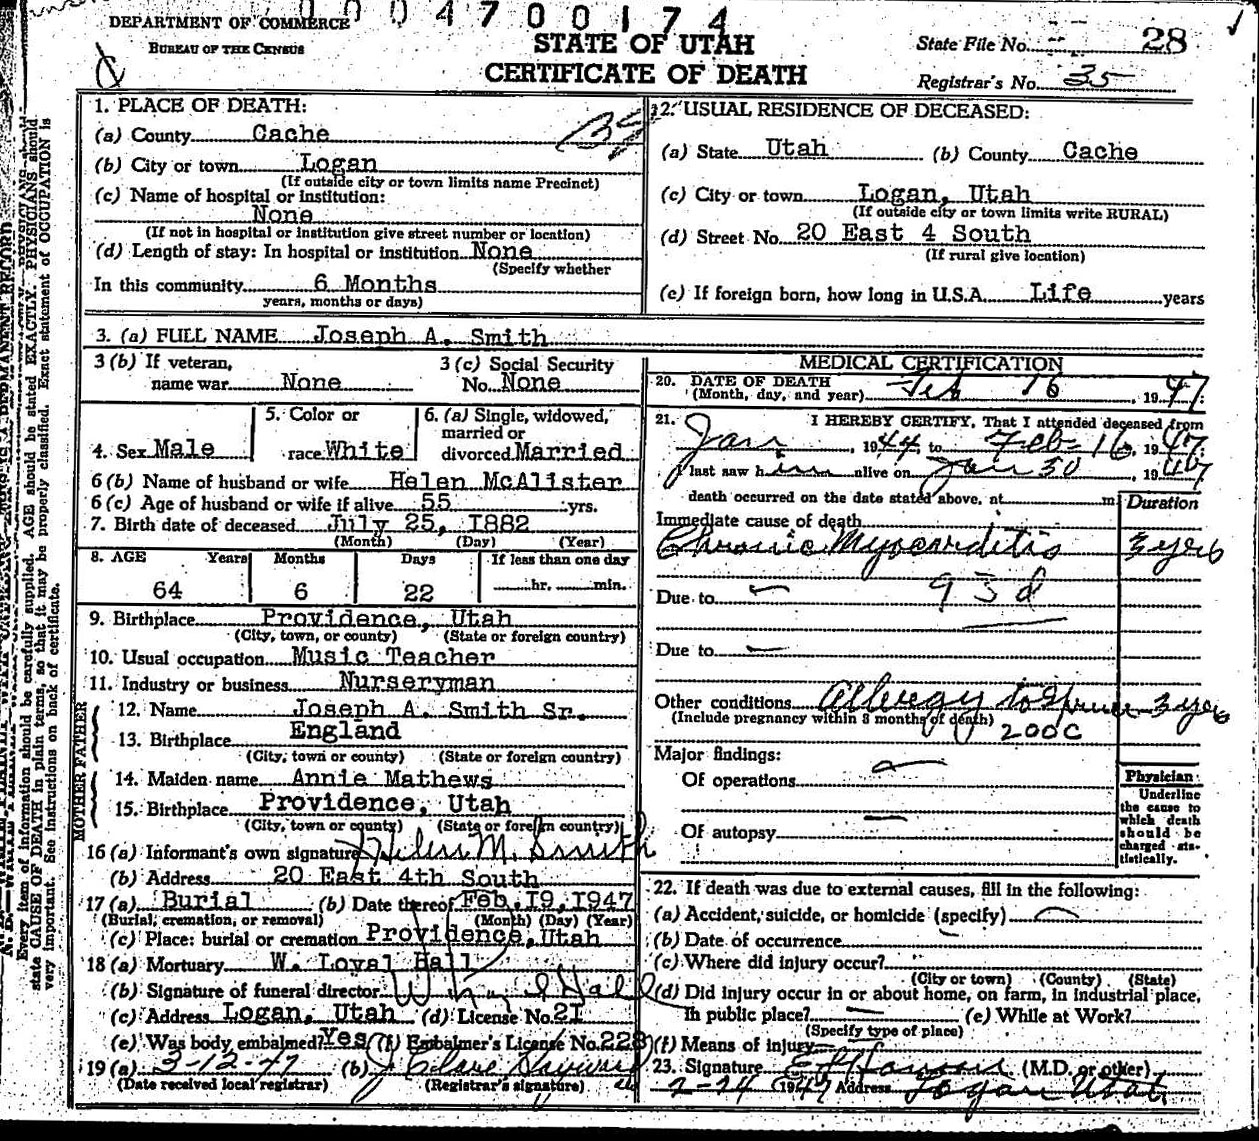 0004700174
DEPARTMENT OF COMMERCE
BUREAU OF THE CENSUS
STATE OF UTAH
CERTIFICATE OF DEATH
State File No. 28
Registrar's No. 35
1. PLACE OF DEATH:
(a) County Cache
(b) City or town Logan
(If outside city or town limits name Precinct)
(c) Name of hospital or institution:
None
(If not in hospital or institution give street number or location)
(d) Length of stay: In hospital or institution None
(Specify whether
In this community 6 Months
years, months or days)
12. USUAL RESIDENCE OF DECEASED:
(a) State Utah (b) County Cache
(c) City or town Logan, Utah
(If outside city or town limits write RURAL)
(d) Street No. 20 East 4 South
(If rural give location)
(e) If foreign born, how long in U.S.A. Life years
3. (a) FULL NAME Joseph A. Smith
3 (b) If veteran, 3 (c) Social Security
name war None No. None
4. Sex Male
5. Color or
race White
6. (a) Single, widowed,
married or
divorced Married
6 (b) Name of husband or wife Helen McAlister
6 (c) Age of husband or wife if alive 55 yrs.
7. Birth date of deceased July 25, 1882
(Month) (Day) (Year)
8. AGE Years Months Days If less than one day
64 6 22 hr. min.
9. Birthplace Providence, Utah
(City, town, or county) (State or foreign country)
10. Usual occupation Music Teacher
11. Industry or business Nurseryman
FATHER
12. Name Joseph A. Smith Sr.
13. Birthplace England
(City, town or county) (State or foreign country)
MOTHER
14. Maiden name Annie Mathews
15. Birthplace Providence, Utah
(City, town or county) (State or foreign country)
16 (a) Informant's own signature Helen M. Smith
(b) Address 20 East 4th South
17 (a) Burial (b) Date thereof Feb. 19, 1947
(Burial, cremation, or removal) (Month) (Day) (Year)
(c) Place: burial or cremation Providence, Utah
18 (a) Mortuary W. Loyal Hall
(b) Signature of funeral director W Loyal Hall
(c) Address Logan, Utah (d) License No. 21
(e) Was body embalmed? Yes (f) Embalmer's License No. 228
19 (a) 3-12-47 (b) J Clare Hayward
(Date received local registrar) (Registrar's signature)
MEDICAL CERTIFICATION
20. DATE OF DEATH
(Month, day, and year) Feb 16, 1947
21. I HEREBY CERTIFY, That I attended deceased from
Jan, 1944, to Feb-16, 1947
I last saw him alive on Jan 30 1947
death occurred on the date stated above, at m
Duration
Immediate cause of death
Chronic Myocarditis 3 yrs
Due to 93d
Due to
Other conditions Allergy to Spruce 3 yrs
(Include pregnancy within 3 months of death) 200C
Major findings:
Of operations
Of autopsy
Physician
Underline
the cause to
which death
should be
charged sta-
tistically.
22. If death was due to external causes, fill in the following:
(a) Accident, suicide, or homicide (specify)
(b) Date of occurrence
(c) Where did injury occur?
(City or town) (County) (State)
(d) Did injury occur in or about home, on farm, in industrial place,
in public place? (e) While at Work?
(Specify type of place)
(f) Means of injury
23. Signature (M.D. or other)
2-24 1947 Address Logan Utah.
Every item of information should be carefully supplied. AGE should be stated EXACTLY. PHYSICIANS should
state CAUSE OF DEATH in plain terms, so that it may be properly classified. Exact statement of OCCUPATION is
very important. See instructions on back of certificate.